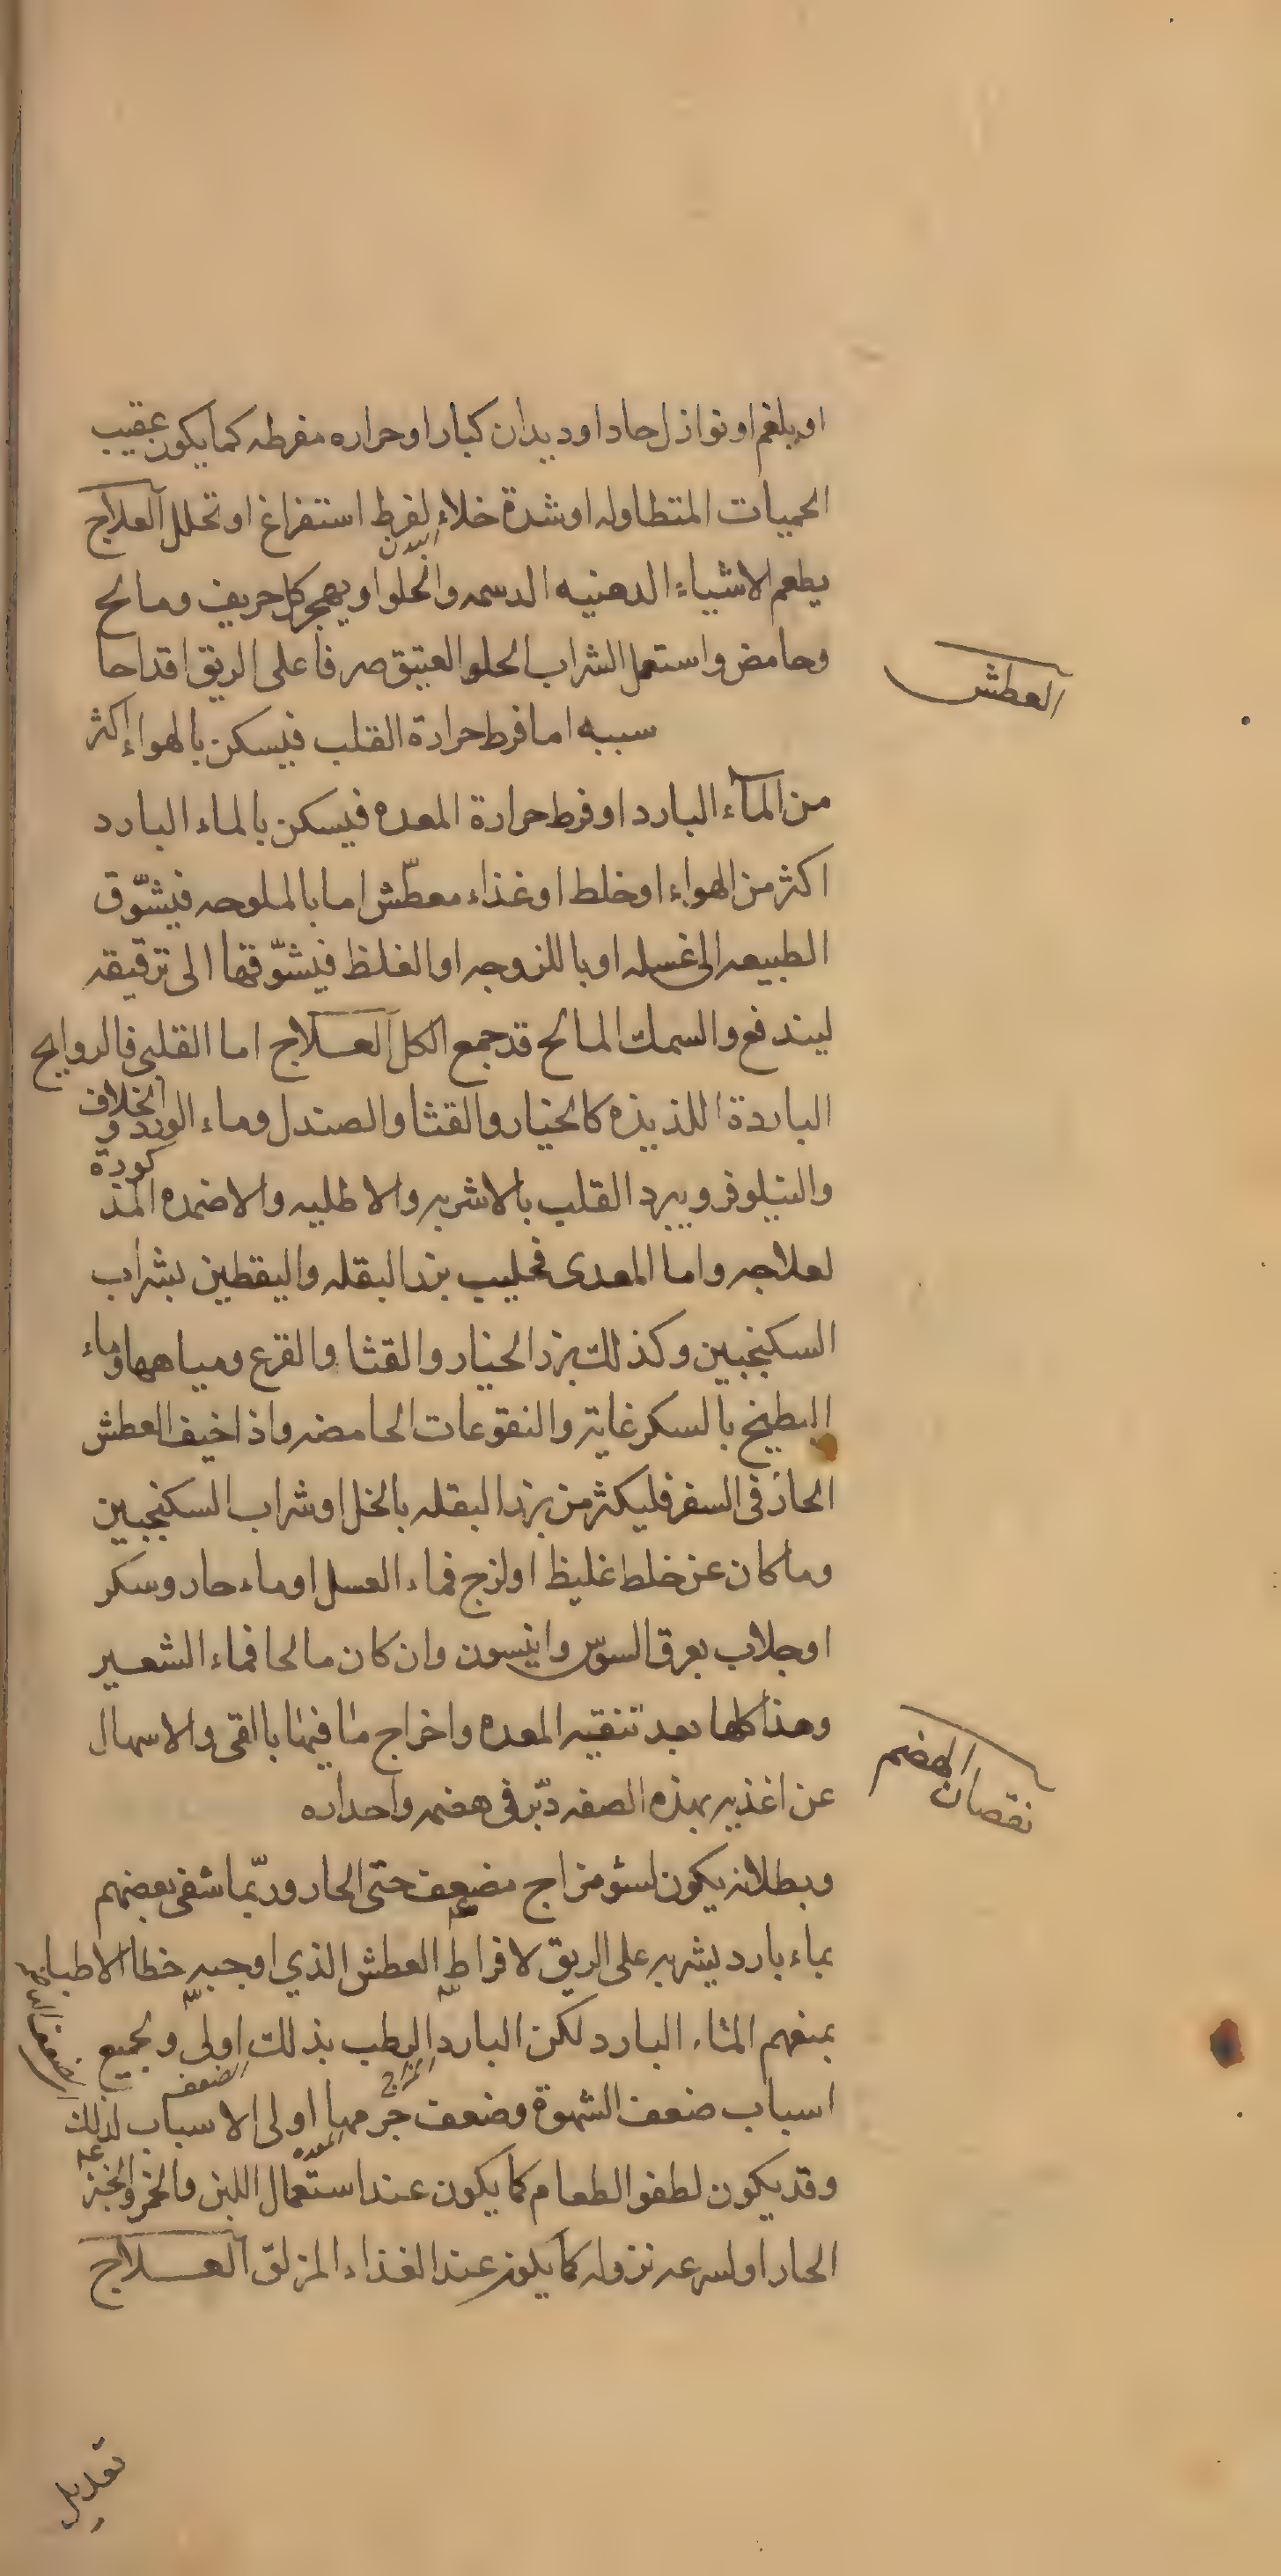 او بلغم او نوازل حاد او ديدان كبار او حراره مفرطه كما يكون عقيب
الحميات المتطاوله او شدة خلاء لفرط استفراغ او تحلل العلاج
البدن
يطعم الاشياء الدهنيه الدسمه والحلوا ويهجر كل حريف ومالح
وحامض واستعمل الشراب الحلو العتيق صرفا على الريق اقداحا
العطش
سببه اما فرط حرارة القلب فيسكن بالهواء اكثر
من المآء البارد او فرط حرارة المعده فيسكن بالماء البارد
اكثر من الهواء او خلط او غذاء معطّش اما بالملوحه فيشوّق
الطبيعه الى غسله او باللزوجه او الغلظ فيشوّقها الى ترقيقه
ليندفع والسمك المالح قد جمع الكل العلاج اما القلبى فالروايح
الباردة اللذيذه كالخيار والقثا والصندل وماء الورد والخلاف
والنيلوفر ويبرد القلب بالاشربه والاطليه والاضمده المذكورة
لعلاجه واما المعدى فحليب بزر البقله واليقطين بشراب
السكنجبين وكذلك بزر الخيار والقثا والقرع ومياهها وماء
البطيخ بالسكر غاية والنقوعات الحامضه واذا خيف العطش
الحار فى السفر فليكثر من بزر البقله بالخل او شراب السكنجبين
وما كان عن خلط غليظ او لزج فماء العسل او ماء حار وسكر
او جلاب بعرق السوس وانيسون وان كان مالحا فماء الشعير
وهذا كلها بعد تنقيه المعده واخراج ما فيها بالقى والاسهال
عن اغذيه بهذه الصفه دبّر فى هضمه واحداره
نقصان الهضم
وبطلانه يكون لسؤ مزاج مضعف حتى الحار وربّما شفى بعضهم
بماء بارد يشربه على الريق لافراط العطش الذي اوجبه خطا الاطبا
بمنعهم الماء البارد لكن البارد الرطب بذلك اولى ولجميع
المزاج
الضعف
اسباب ضعف الشهوة وضعف جرمها اولى الاسباب لذلك
المعده
وقد يكون لطفو الطعام كما يكون عند استعمال اللبن والخمر والخبز
الحار او لسرعه نزوله كما يكون عند الغذاء المزلق العلاج
تعديل